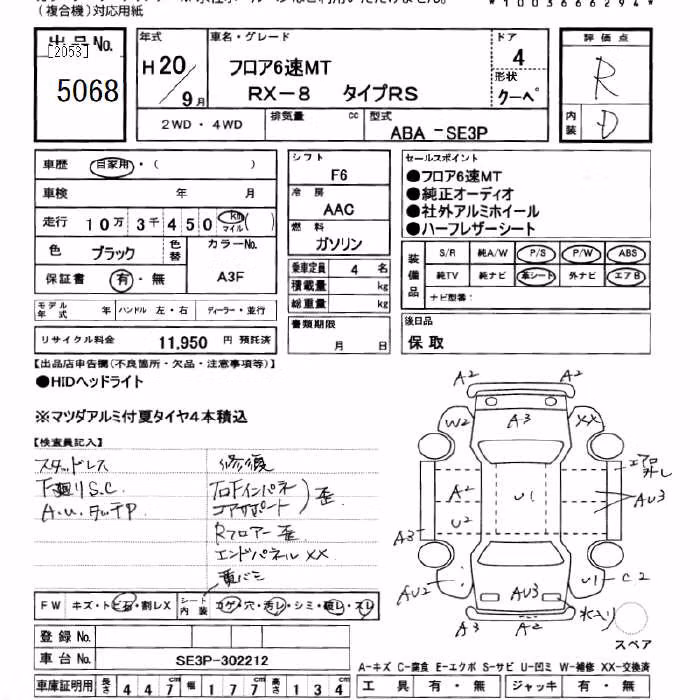 (複合機)対応用紙
*1003666294*
出品No.
[2053]
5068
年式
H20/9月
車名・グレード
フロア6速MT
RX-8 タイプRS
ドア
4
形状
クーペ
評価点
R
内装
D
2WD・4WD
排気量 cc
型式
ABA -SE3P
車歴 自家用・( )
車検 年 月
走行 10万3千450km マイル( )
色 ブラック 色替
カラーNo.
A3F
保証書 有・無
モデル年式 年 ハンドル 左・右 ディーラー・並行
リサイクル料金 11,950 円 預託済
シフト
F6
冷房
AAC
燃料
ガソリン
乗車定員 4 名
積載量 kg
総重量 kg
書類期限
月 日
セールスポイント
●フロア6速MT
●純正オーディオ
●社外アルミホイール
●ハーフレザーシート
装備品
S/R 純A/W P/S P/W ABS
純TV 純ナビ 革シート 外ナビ エアB
ナビ型番:
後日品
保取
【出品店申告欄(不良箇所・欠品・注意事項等)】
●HIDヘッドライト
※マツダアルミ付夏タイヤ4本積込
【検査員記入】
スタッドレス
下廻りS.C.
A.u.タッチP
修復
右Fインパネ
コアサポート
歪
Rフロアー歪
エンドパネルXX
FW キズ・トビ石・割レX
シート内装 コゲ・穴・汚レ・シミ・破レ・スレ
登録No.
車台No. SE3P-302212
車庫証明用 長さ 447cm 幅 177cm 高さ 134cm
A2 A2
W2 A3 XX
エアロ外し
A2 U1 AU3
U2
A3
AU2 AU3 U1 C2
水入り
A3 A2
スペア
A-キズ C-腐食 E-エクボ S-サビ U-凹ミ W-補修 XX-交換済
工具 有・無 ジャッキ 有・無